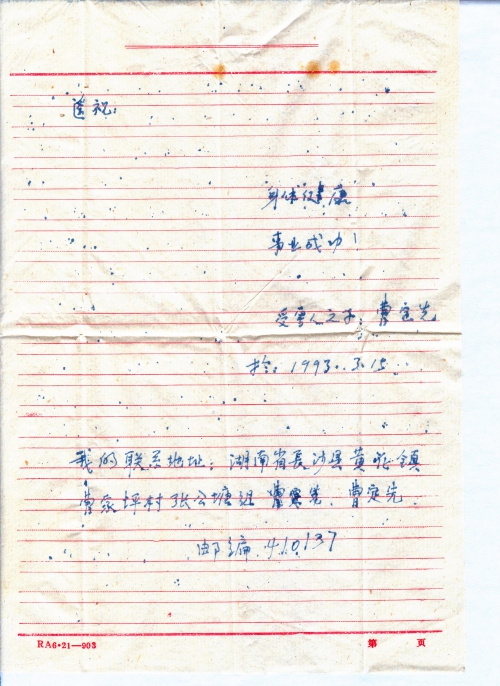 谨祝:
身体健康
事业成功!
受害人之子:曹定先
于:1993.3.15.
我的联系地址:湖南省长沙县黄花镇
曹家坪村张公塘组 曹定先
邮编 410137
RA6·21—903
第 页